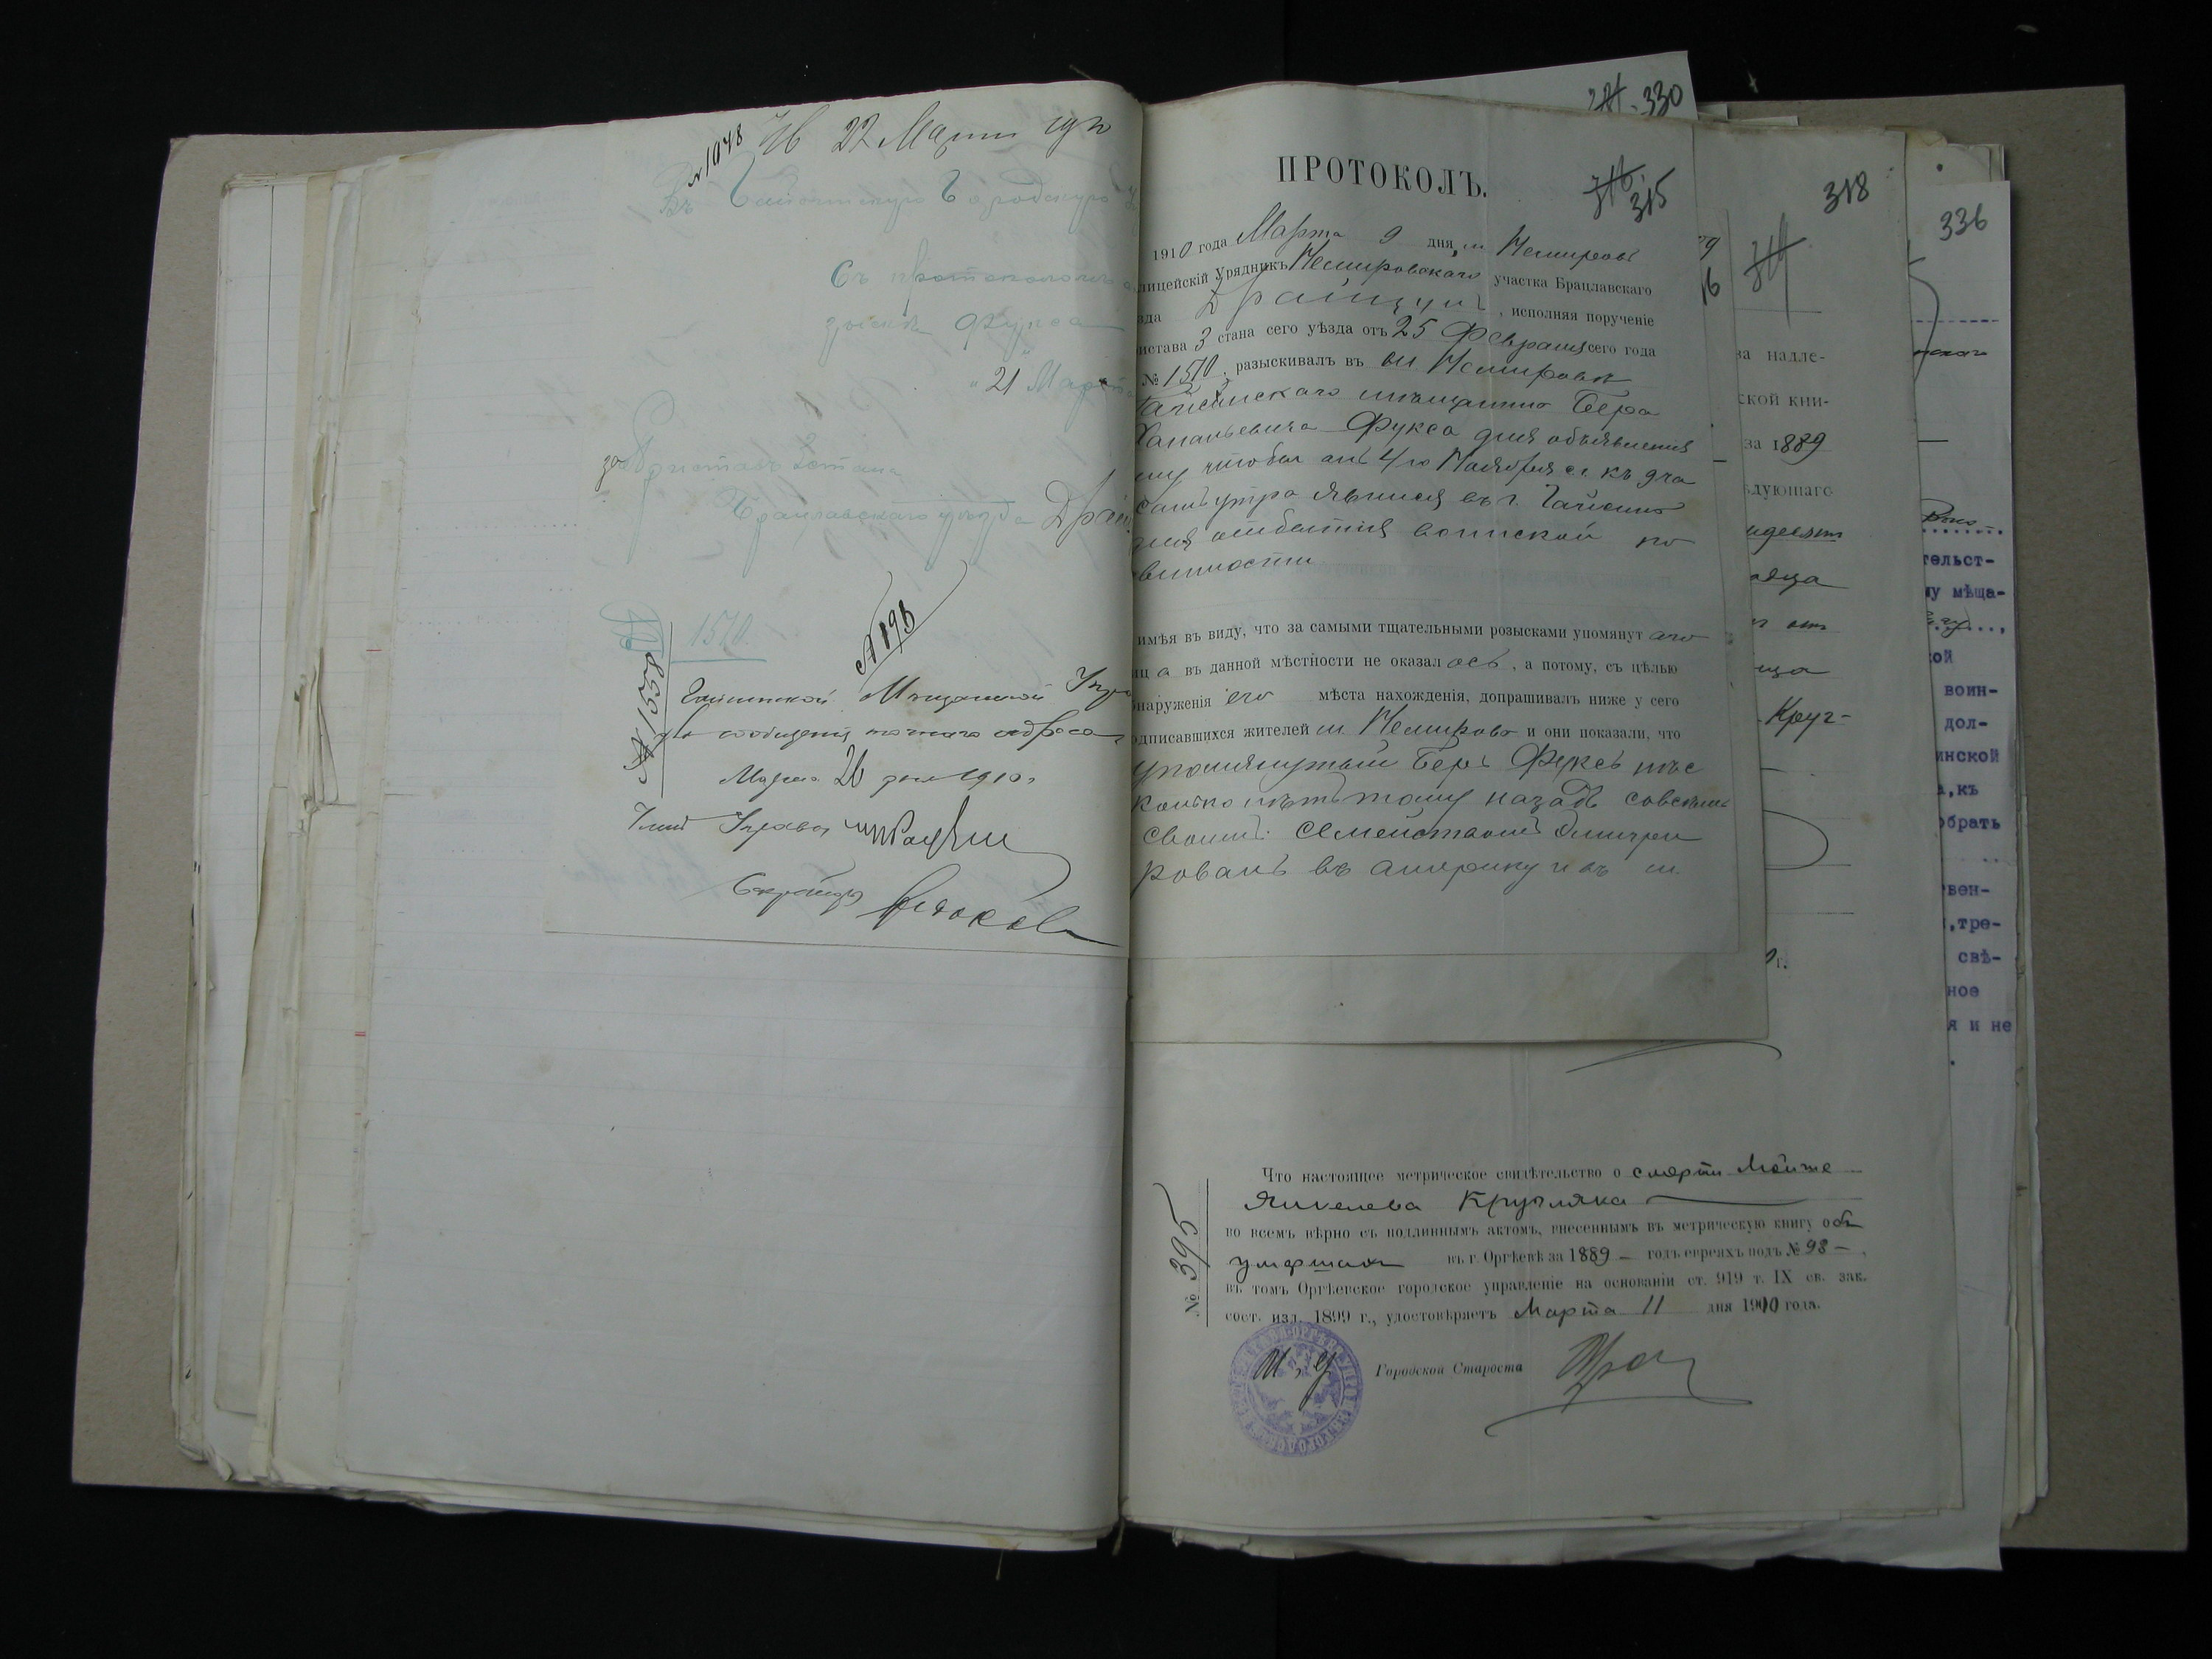 № 1048 Чб 22 Марта 1910
Въ Гайсинскую Городскую У
Съ протоколомъ о
зыскѣ Фукса
"21" Марта
за Приставъ 3 стана
Брацлавскаго уѣзда Драй
№ 1570.
№ 1538
№ 1193
Гайсинской Мѣщанской Упра
для сообщенія точнаго адреса
Марта 26 дня 1910 г
Членъ Управы
Секретарь
ПРОТОКОЛЪ.
315
1910 года Марта 9 дня, м Немировъ
лицейскій Урядникъ Немировскаго участка Брацлавскаго
зда , исполняя порученіе
истава 3 стана сего уѣзда отъ 25 Февраля сего года
№ 1570, разыскивалъ въ м. Немировѣ
Гайсинскаго мѣщанина Бера
Хананьевича Фукса для объявленія
ему чтобы онъ 4 го Ноября с.г. къ 9 ча
самъ утра явился въ г. Гайсинъ
для отбытія воинской по
винности
имѣя въ виду, что за самыми тщательными розысками упомянут аго
иц а въ данной мѣстности не оказал ось, а потому, съ цѣлью
наруженія его мѣста нахожденія, допрашивалъ ниже у сего
одписавшихся жителей м. Немирова и они показали, что
упомянутый Беръ Фуксъ нѣс
колько лѣтъ тому назадъ совсѣмъ
своимъ семействомъ эмигри
ровалъ въ америку и въ м.
330
318
за надле-
ской кни-
за 1889
ѣдующаго
Круг-
0 г.
336
тельст-
му мѣща-
ой
воин-
дол-
инской
а,къ
обрать
вен-
,тре-
свѣ-
ное
я и не
№ 395
Что настоящее метрическое свидѣтельство о смерти Мойше
Янкелева Кругляка
во всемъ вѣрно съ подлиннымъ актомъ, внесеннымъ въ метрическую книгу объ
умершихъ въ г. Оргѣевѣ за 1889 – годъ евреяхъ подъ № 98 –,
въ томъ Оргѣевское городское управленіе на основаніи ст. 919 т. IX св. зак.
сост. изд. 1899 г., удостовѣряетъ Марта 11 дня 1910 года.
Городской Староста